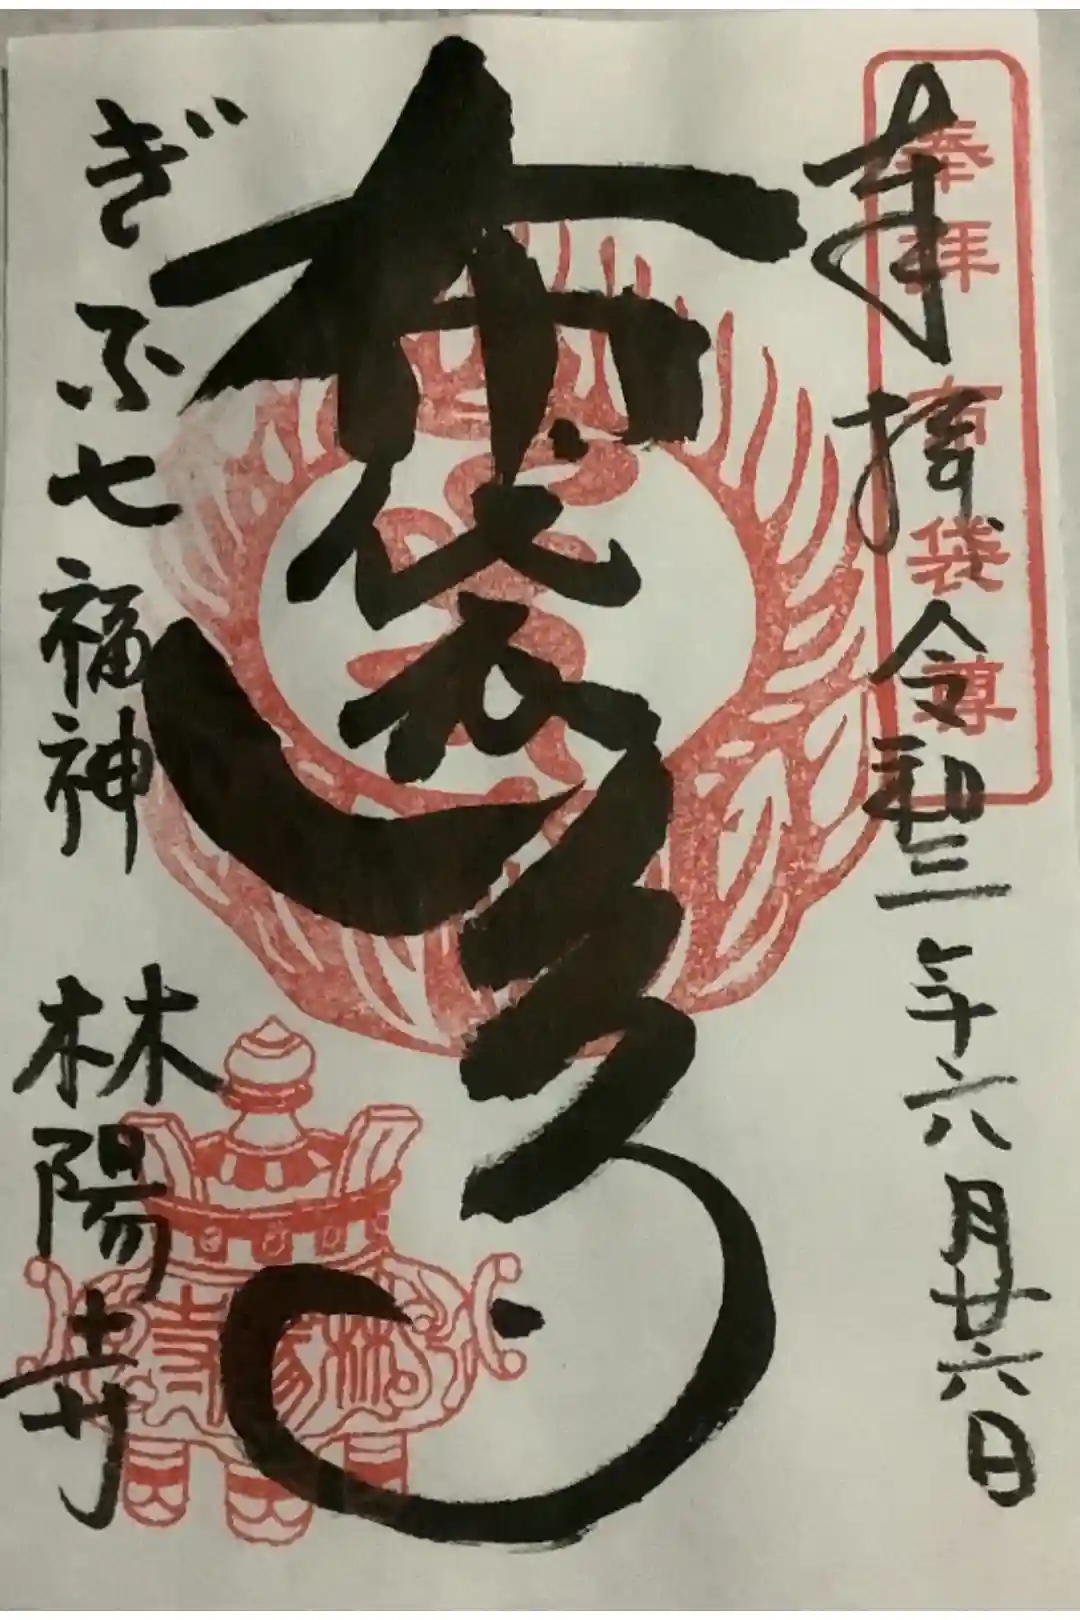 奉拝
令和三年六月廿六日
奉拝 布袋尊
布袋尊
ぎふ七福神
林陽寺
林陽寺